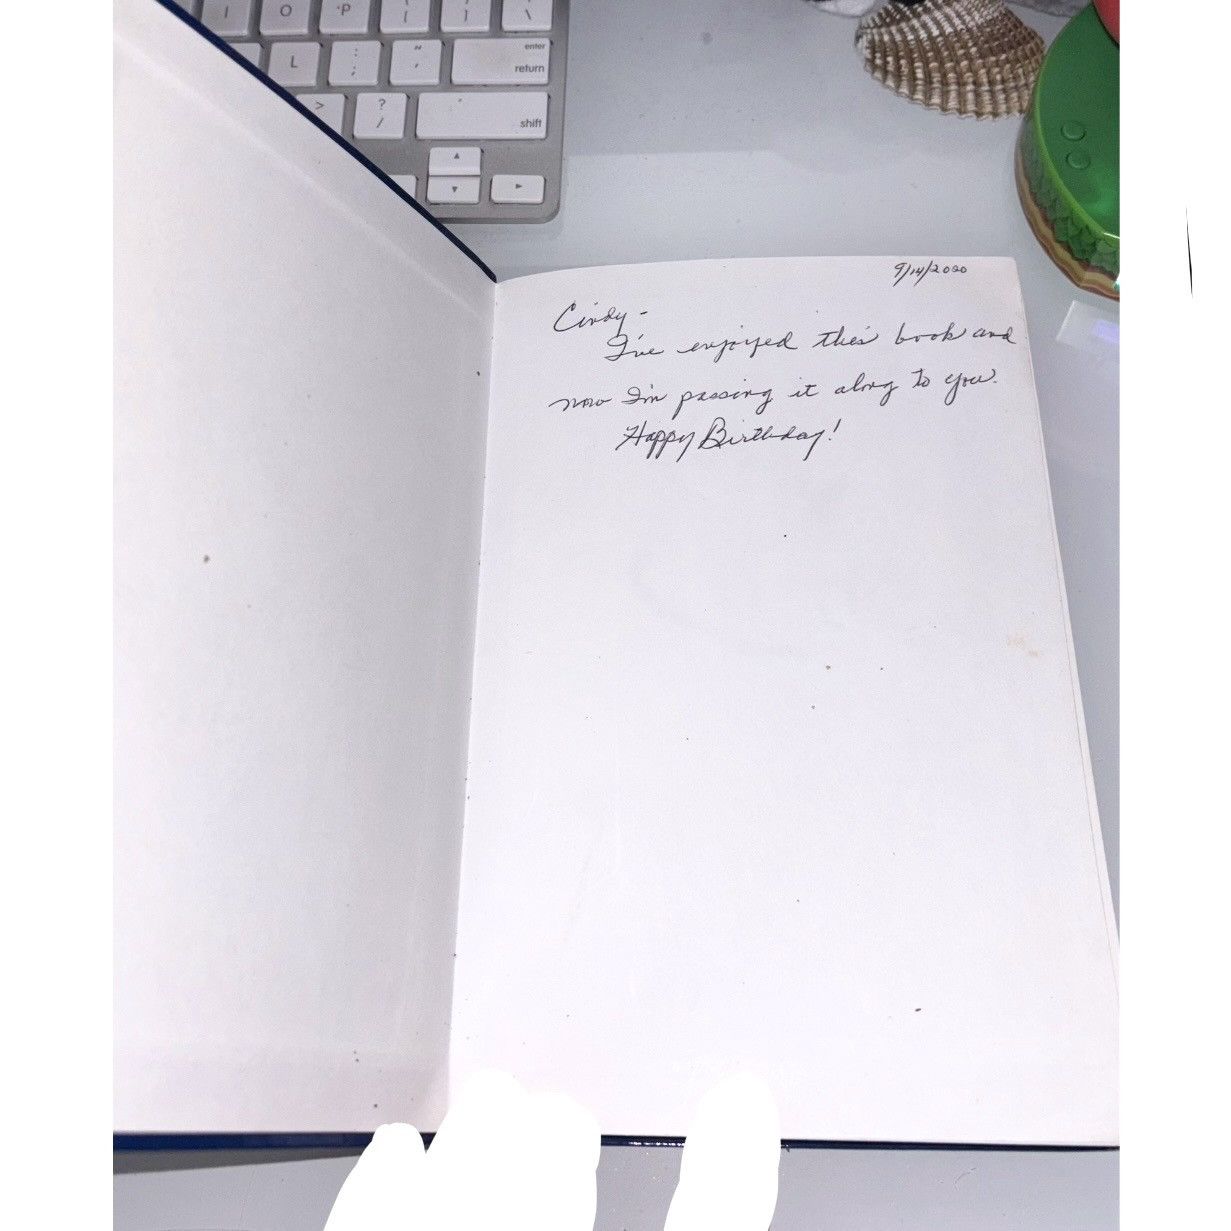 I O P { [ } ] | \
L : ; " ' enter return
> ? / shift
9/14/2020
Cindy -
I've enjoyed this book and
now I'm passing it along to you.
Happy Birthday!